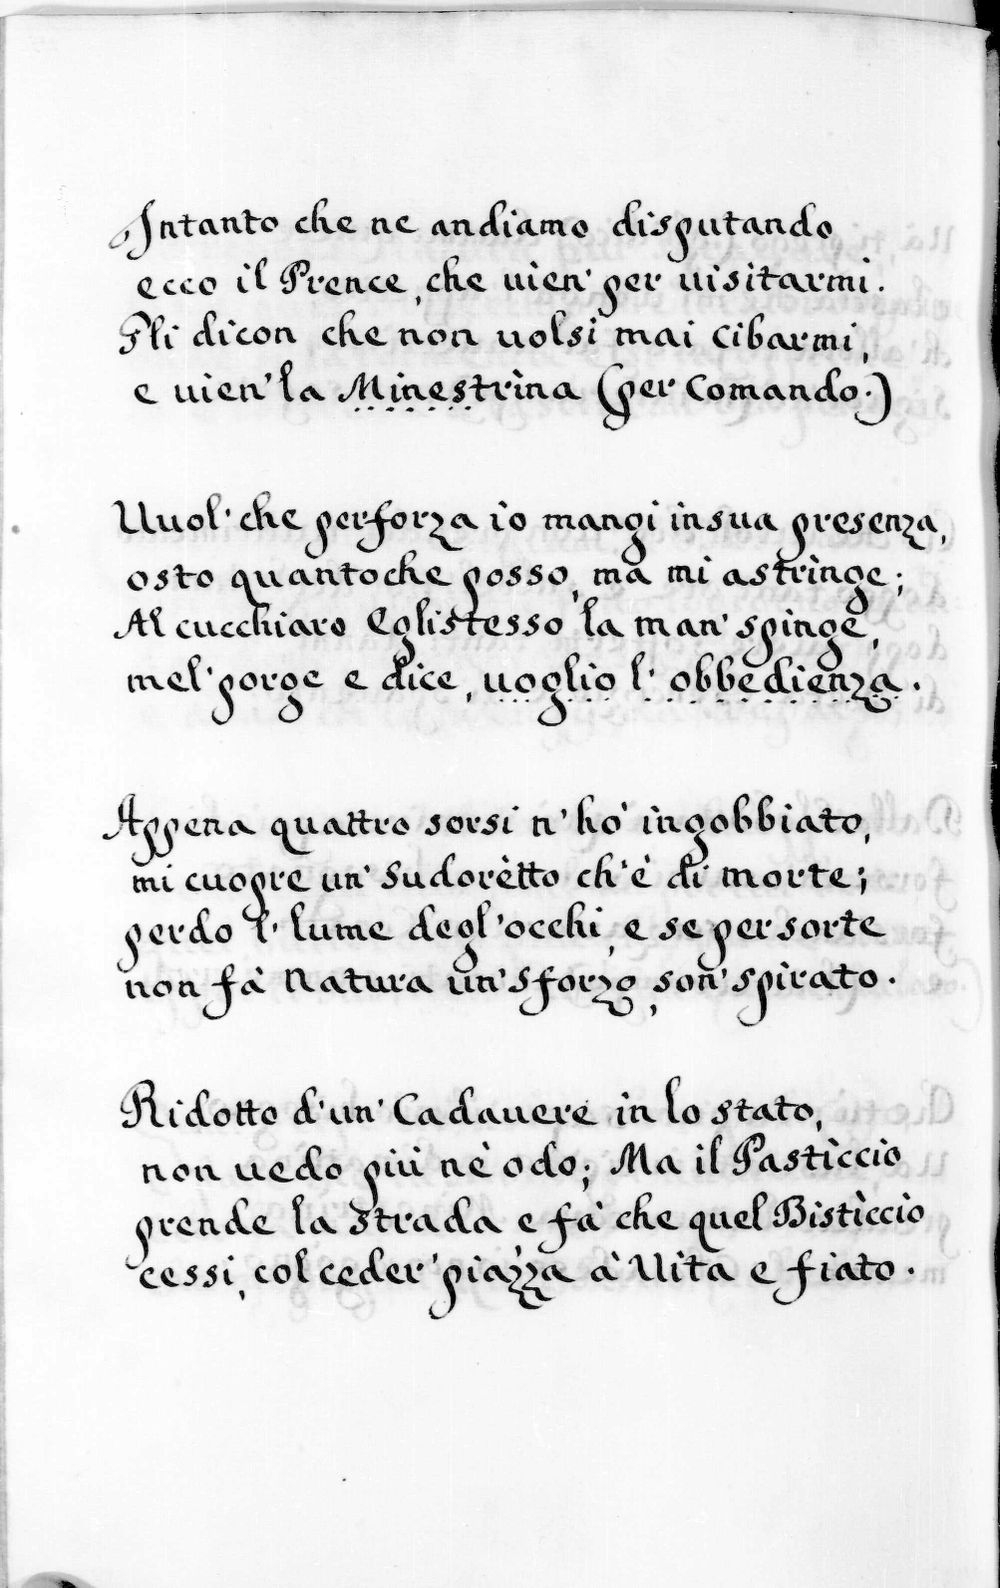 Intanto che ne andiamo disputando
ecco il Prence, che uien' per uisitarmi.
Gli dicon che non uolsi mai cibarmi,
e uien' la Minestrina (per Comando.)
Uuol' che perforza io mangi in sua presenza,
osto quantoche posso, ma mi astringe;
Al cucchiaro Eglistesso la man' spinge,
mel' porge e dice, uoglio l' obbedienza.
Appena quattro sorsi n' hò ingobbiato,
mi cuopre un' sudorètto ch' è di morte;
perdo l' lume degl' occhi, e se per sorte
non fà Natura un' sforzo, son' spirato.
Ridotto d' un' Cadauere in lo stato,
non uedo più nè odo; Ma il Pasticcio
prende la strada e fà che quel Bisticcio
cessi, col ceder' piazza à Uita e fiato.